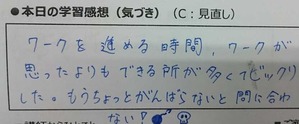 ●本日の学習感想（気づき）　（C：見直し）
ワークを進める時間，ワークが
思ったよりもできる所が多くてビックリ
した。もうちょっとがんばらないと間に合わ
ない！